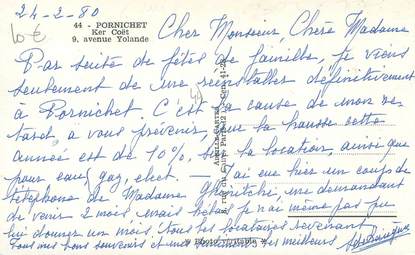 24-2-80
10 €
44 - PORNICHET
Ker Coët
9, avenue Yolande
Cher Monsieur, Chère Madame
Par suite de fêtes de famille, je viens
seulement de me réinstaller définitivement
à Pornichet. C'est la cause de mon re-
tard a vous prévenir, que la hausse cette
année est de 10%, sur la location, ainsi que
pour eau, gaz, elect. — J'ai eue hier un coup de
téléphone de Madame me demandant
de venir 2 mois, mais hélas je n'ai même pas pu
lui donner un mois, tous les locataires revenant
Tous mes bons souvenirs et mes meilleurs